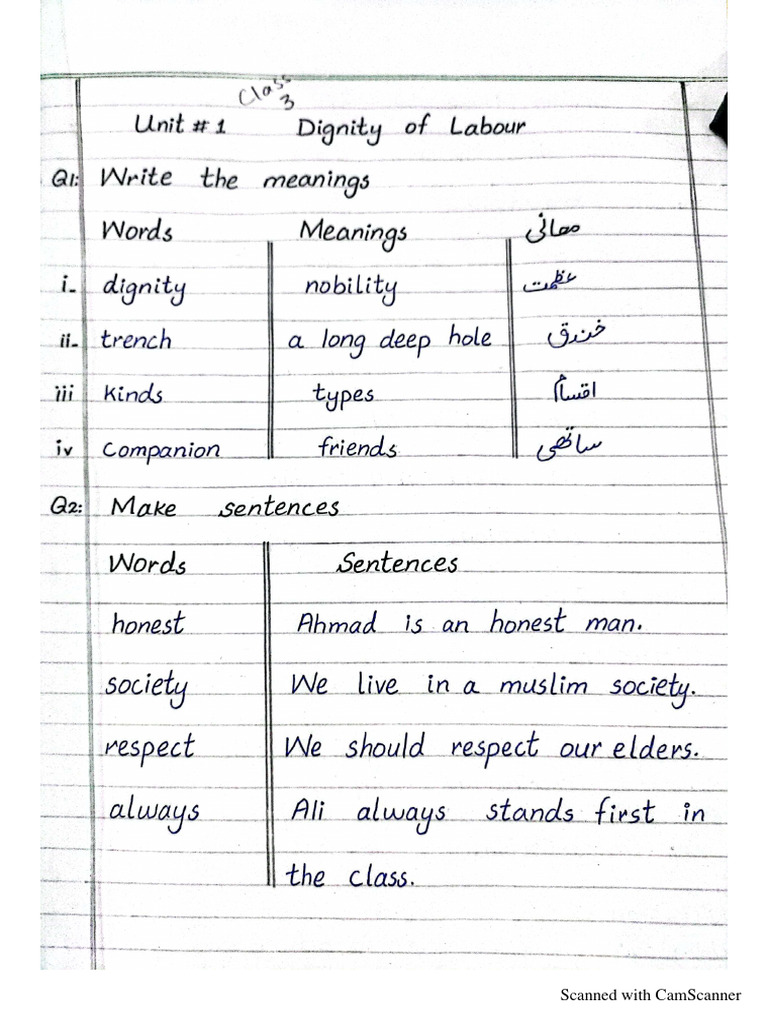 Class
3
Unit # 1 Dignity of Labour
Q1: Write the meanings
Words Meanings معانی
i- dignity nobility عظمت
ii- trench a long deep hole خندق
iii kinds types اقسام
iv companion friends ساتھی
Q2: Make sentences
Words Sentences
honest Ahmad is an honest man.
society We live in a muslim society.
respect We should respect our elders.
always Ali always stands first in
the class.
Scanned with CamScanner